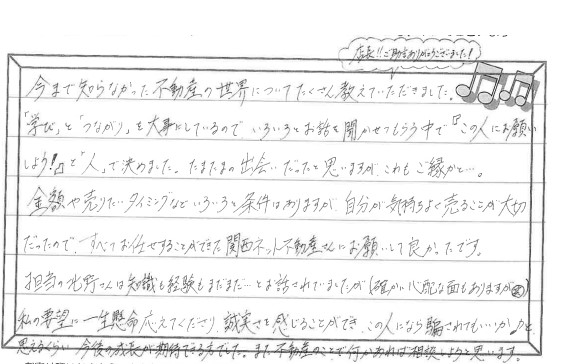 店長!!ご助言ありがとうございました!
今まで知らなかった不動産の世界についてたくさん教えていただきました。
「学び」と「つながり」を大事にしているので いろいろとお話を聞かせてもらう中で『この人にお願い
しよう!』と"人"で決めました。たまたまの出会いだったと思いますが、これもご縁かと…。
金額や売りたいタイミングなど いろいろと条件はありますが、自分が気持ちよく売ることが大切
だったので、すべてお任せすることができた関西ネット不動産さんにお願いして良かったです。
担当の北野さんは知識も経験もまだまだ…とお話されていましたが(確かに心配な面もありますが 笑)
私の要望に一生懸命応えてくださり、誠実さを感じることができ、この人になら騙されてもいいか♪と
思えるくらい 今後の成長が期待できる方でした。また不動産のことで何かあれば相談しようと思います。